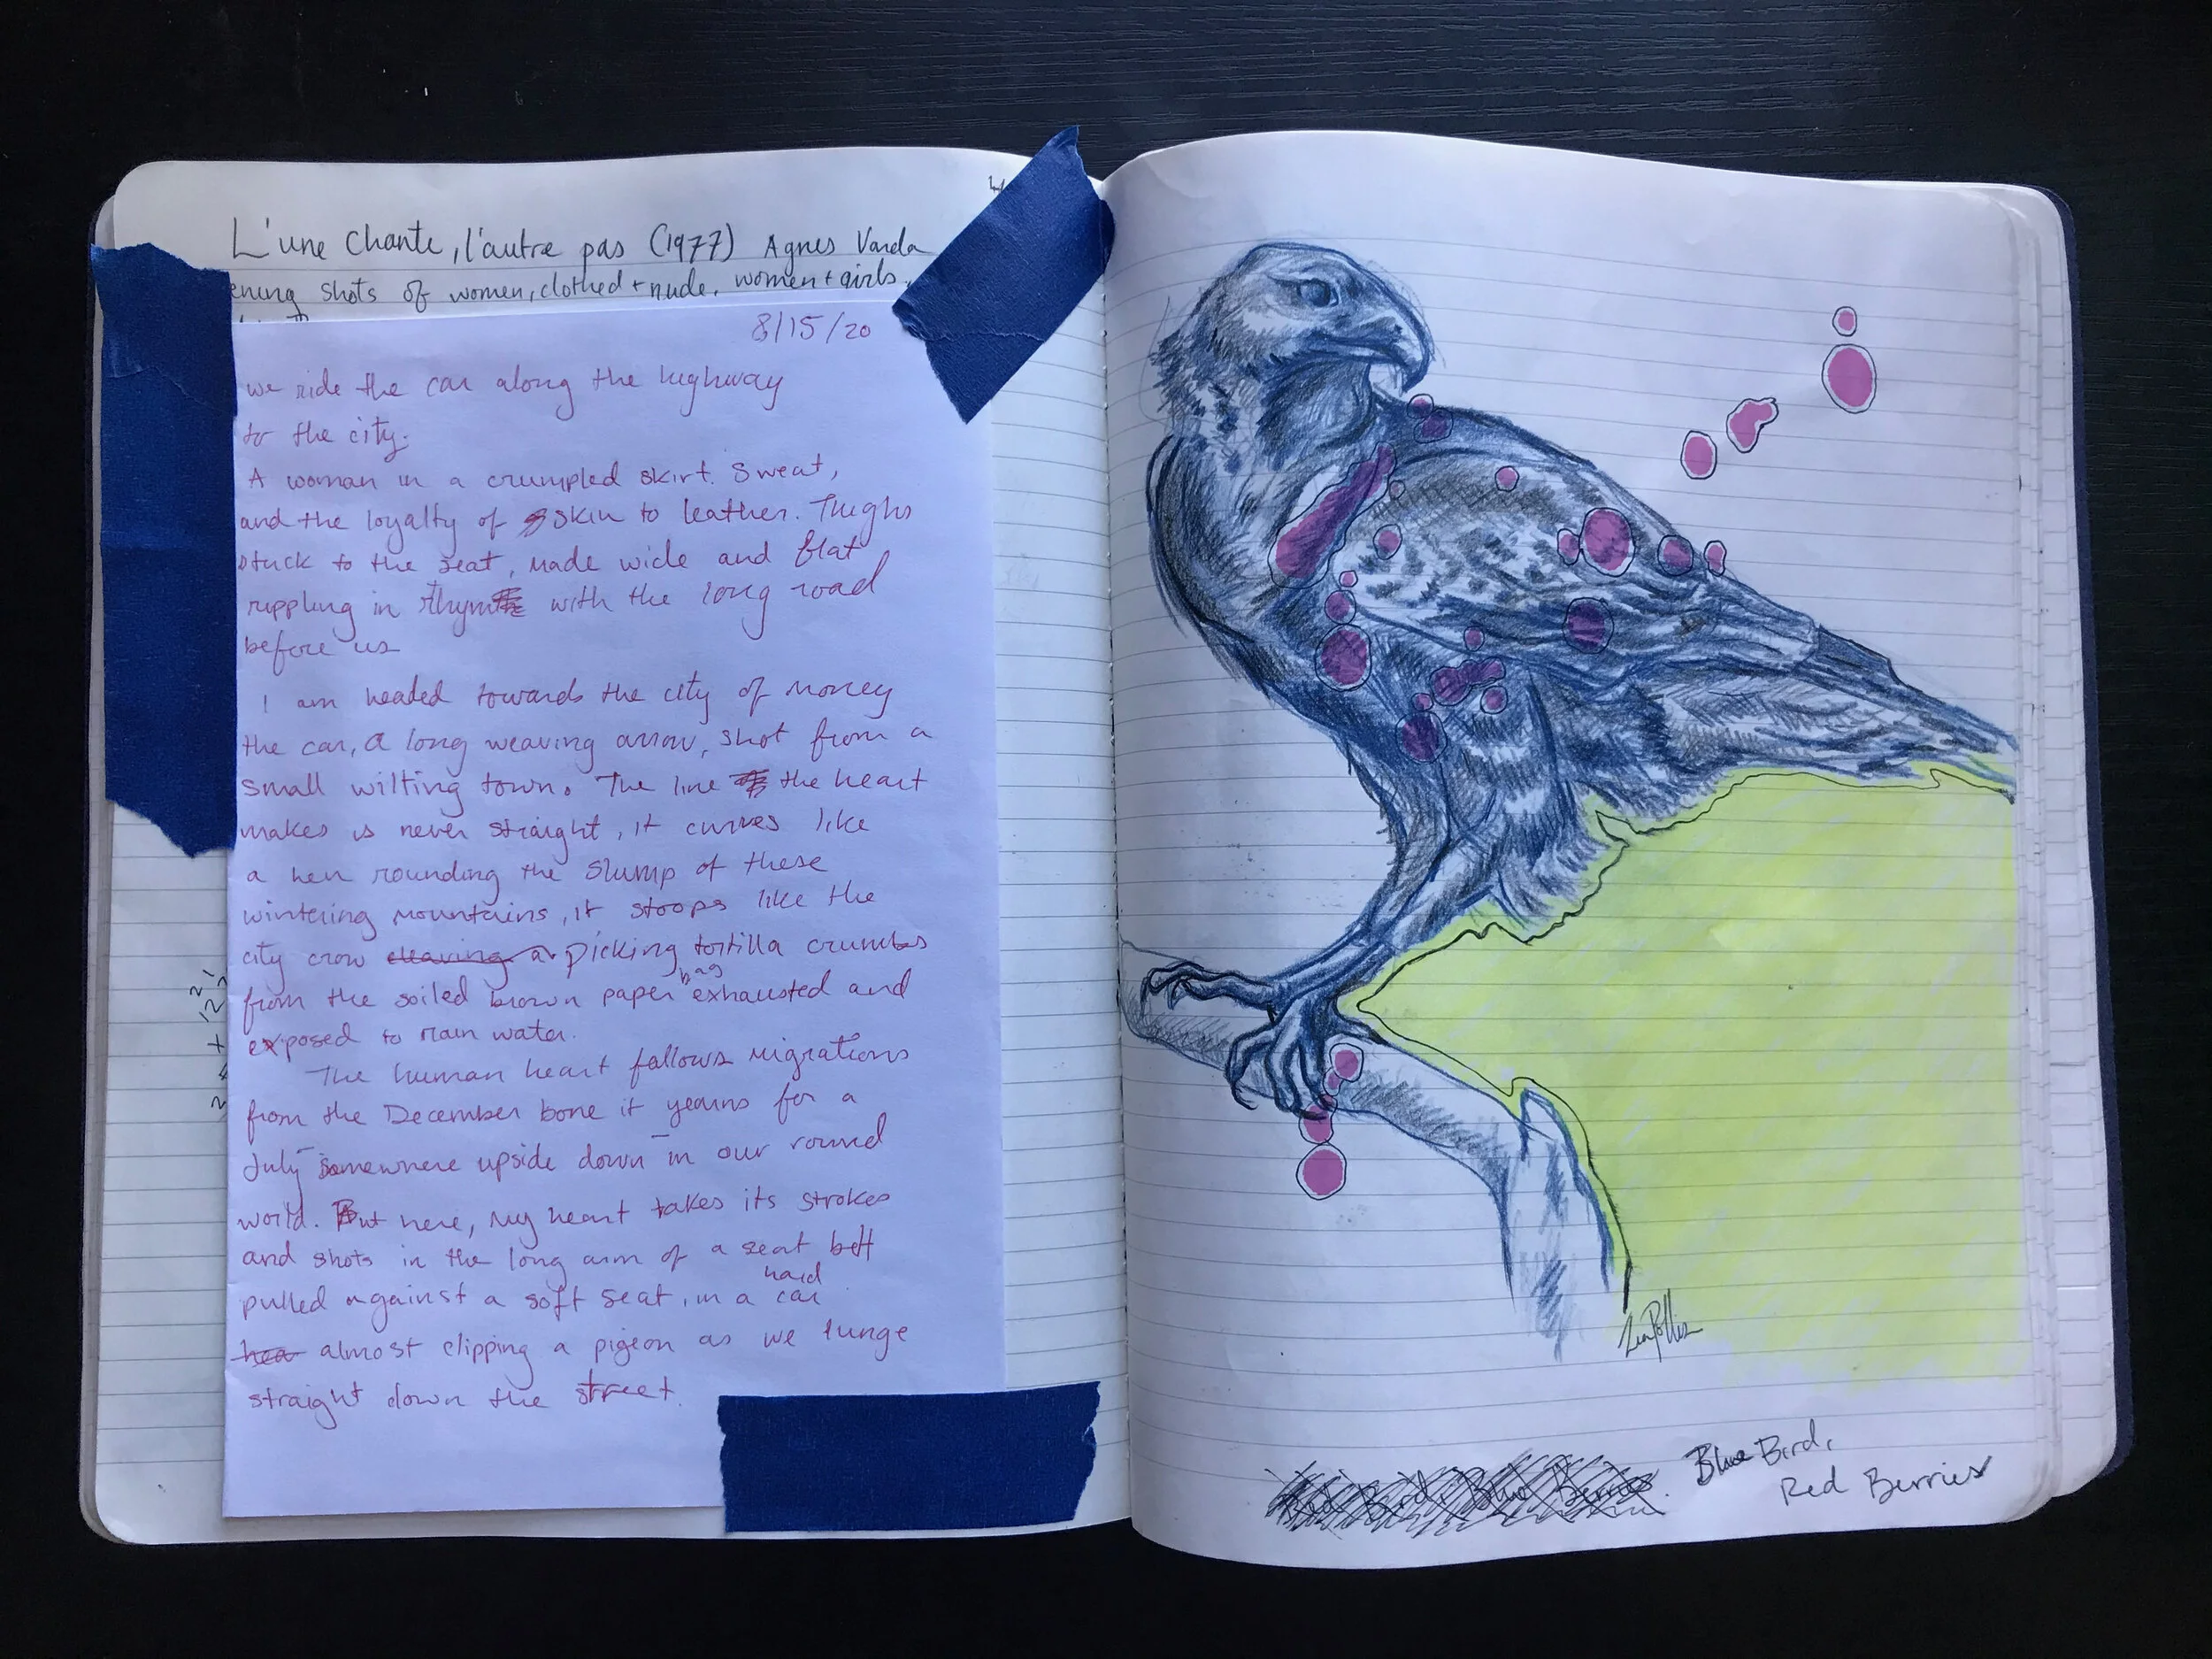 L'une chante, l'autre pas (1977) Agnes Varda
ening shots of women, clothed + nude, women + girls,
8/15/20
we ride the car along the highway
to the city.
A woman in a crumpled skirt. Sweat,
and the loyalty of skin to leather. Thighs
stuck to the seat, made wide and flat
rippling in rhym with the long road
before us
I am headed towards the city of money
the car, a long weaving arrow, shot from a
small wilting town. The line the heart
makes is never straight, it curves like
a hen rounding the slump of these
wintering mountains, it stoops like the
city crow cleaving a picking tortilla crumbs
from the soiled brown paper bag exhausted and
exposed to rain water.
The human heart follows migrations
from the December bone it yearns for a
July somewhere upside down in our round
world. But here, my heart takes its strokes
and shots in the long arm of a seat belt
pulled against a soft seat, in a hard car
hea almost clipping a pigeon as we lunge
straight down the street.
Red Bird, Blue Berries. Blue Bird,
Red Berries